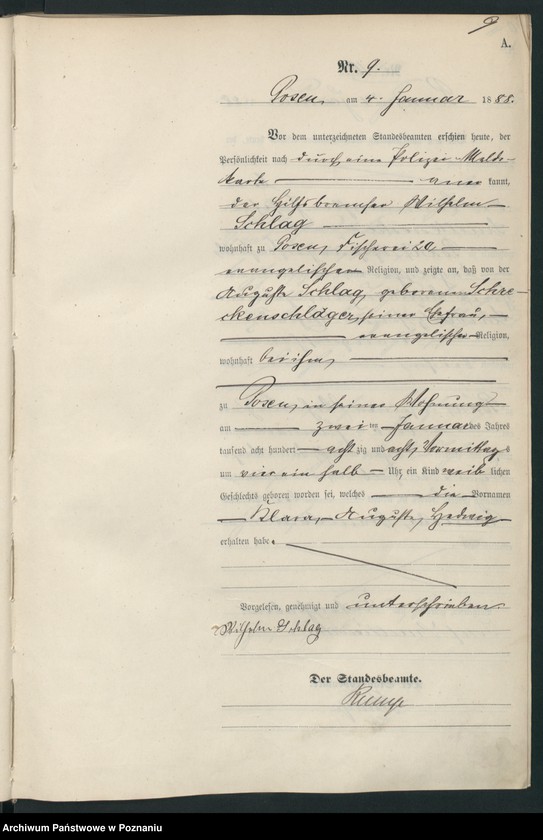 9
A.
Nr. 9.
Posen, am 4. Januar 1888.
Vor dem unterzeichneten Standesbeamten erschien heute, der
Persönlichkeit nach durch eine Polizei-Melde-
karte anerkannt,
der Hilfsbremser Wilhelm
Schlag
wohnhaft zu Posen, Fischerei 20
evangelischer Religion, und zeigte an, daß von der
Auguste Schlag, geborenen Schre-
ckenschläger, seiner Ehefrau,
evangelischer Religion,
wohnhaft bei ihm,
zu Posen, in seiner Wohnung
am zweiten Januar des Jahres
tausend acht hundert achtzig und acht, Vormittags
um vier ein halb Uhr, ein Kind weiblichen
Geschlechts geboren worden sei, welches die Vornamen
Klara, Auguste, Hedwig
erhalten habe.
Vorgelesen, genehmigt und unterschrieben
Wilhelm Schlag
Der Standesbeamte.
Archiwum Państwowe w Poznaniu